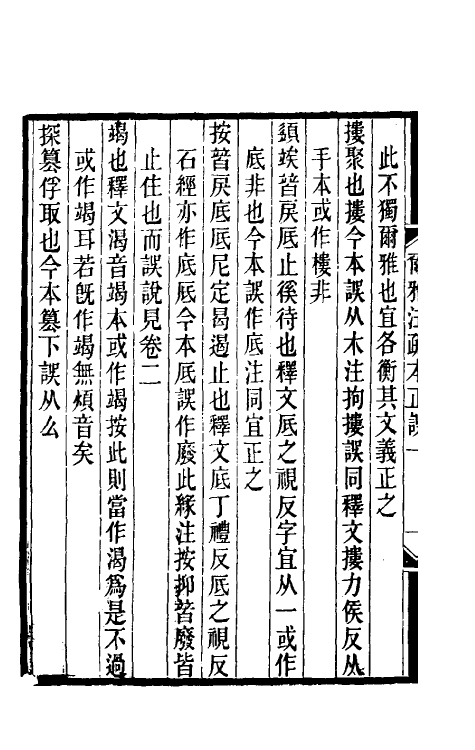 爾雅注疏本正誤一
此不獨爾雅也宜各衡其文義正之
摟聚也摟今本誤从木注拘摟誤同釋文摟力侯反从
手本或作樓非
頦竢替戾厎止徯待也釋文厎之視反字宜从一或作
底非也今本誤作底注同宜正之
按替戾底厎尼定曷遏止也釋文底丁禮反厎之視反
石經亦作底厎今本厎誤作廢此緣注按抑替廢皆
止住也而誤說見卷二
竭也釋文渴音竭本或作竭按此則當作渴爲是不過
或作竭耳若旣作竭無煩音矣
探篡俘取也今本篡下誤从么